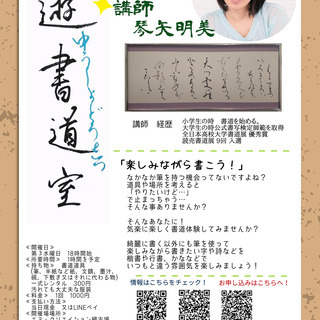 遊書道室
ゆうしょどうしつ
講師
琴矢明美
講師 経歴
小学生の時 書道を始める。
大学生の時公式書写検定師範を取得
全日本高校大学書道展 優秀賞
読売書道展 9回 入選
「楽しみながら書こう！」
なかなか筆を持つ機会ってないですよね？
道具や場所を考えると
「やりたいけど…」
で止まっちゃう…
そんな事ありませんか？
そんなあなたに！
気楽に楽しく書道体験してみませんか？
綺麗に書く以外にも筆を使って
楽しみながら書きたい字や詩などを
楷書や行書、かななどで
いつもと違う雰囲気を楽しみましょう！
≪開催日≫
第３水曜日 18時開始
≪所要時間≫ 1時間を予定
≪持ち物≫ 書道道具
(筆、半紙など紙、文鎮、墨汁、
硯、下敷きまたはそれに代わる物)
一式レンタル 300円
汚れても大丈夫な服装
≪料金≫ 1回 1000円
≪支払い方法≫
当日現金 又はLINEペイ
≪開催場所≫
情報はこちらをチェック！
お申し込みはこちらへ！